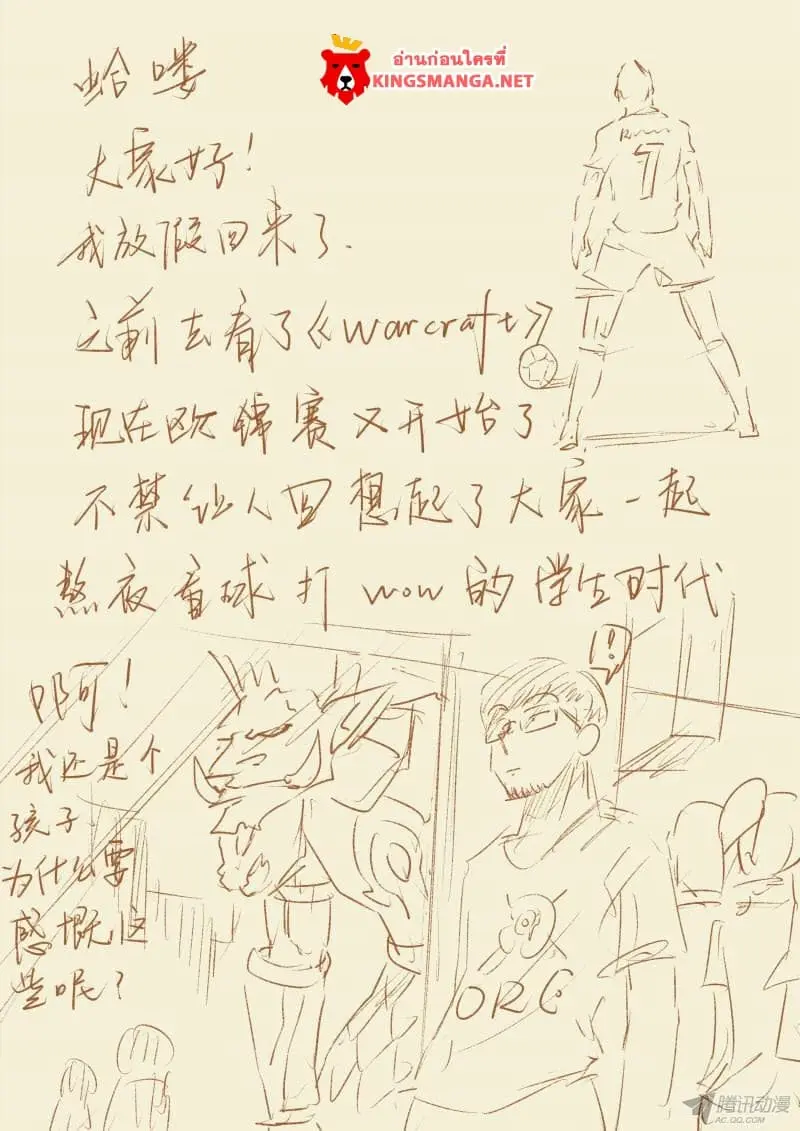 อ่านก่อนใครที่
KINGSMANGA.NET
哈喽
大家好!
我放假回来了.
之前去看了《warcraft》
现在欧锦赛又开始了
不禁让人回想起了大家一起
熬夜看球打wow的学生时代
7
!
啊!
我还是个
孩子
为什么要
感慨这
些呢?
ORC
腾讯动漫
AC.QQ.COM